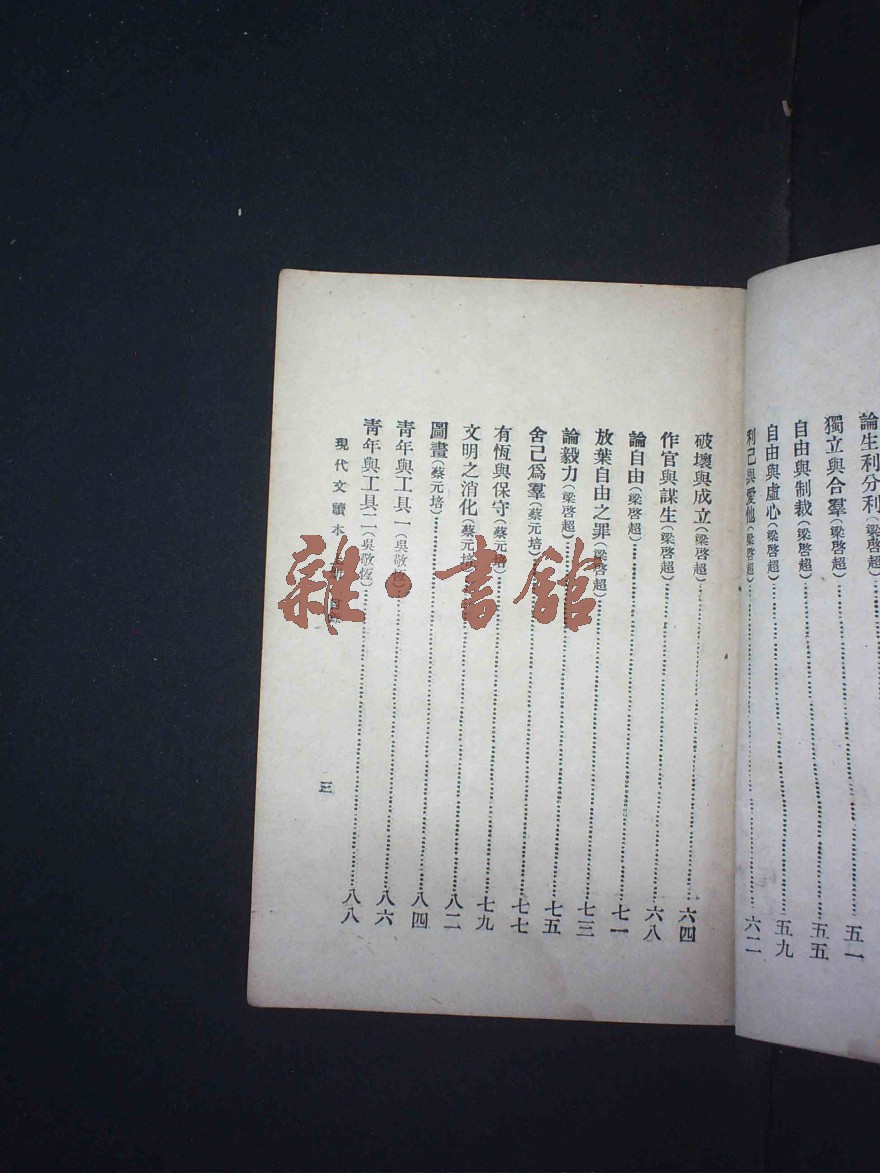 論生利分利(梁啓超)
獨立與合羣(梁啓超)……五一
自由與制裁(梁啓超)……五五
自由與虛心(梁啓超)……五九
利己與愛他(梁啓超)……六二
破壞與成立(梁啓超)……六四
作官與謀生(梁啓超)……六八
論自由(梁啓超)……七一
放葉自由之罪(梁啓超)……七三
論毅力(梁啓超)……七五
舍己爲羣(蔡元培)……七七
有恆與保守(蔡元培)……七九
文明之消化(蔡元培)……八二
圖畫(蔡元培)……八四
靑年與工具一(吳敬恆)……八六
靑年與工具二(吳敬恆)……八八
現代文讀本
三
雜·書館